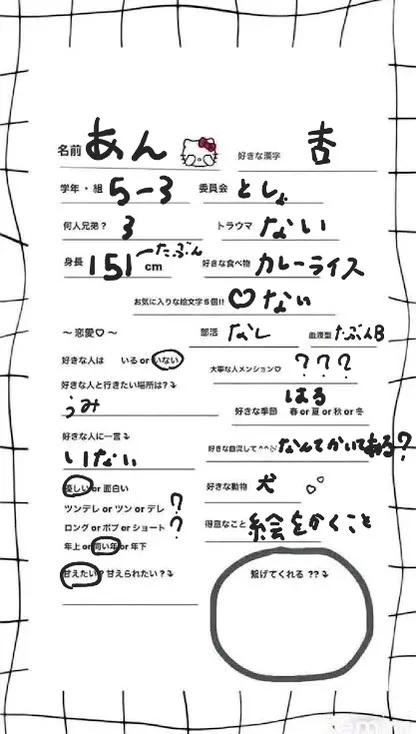 名前 あん 好きな漢字 杏
学年・組 5-3 委員会 としょ
何人兄弟? 3 トラウマ ない
身長 151 cm たぶん 好きな食べ物 カレーライス
お気に入りな絵文字5個!! ♡ ない
〜恋愛♡〜 部活 なし 血液型 たぶんB
好きな人は いる or いない 大事な人メンション♡ ???
好きな人と行きたい場所は?⤵
うみ
はる
好きな季節 春 or 夏 or 秋 or 冬
好きな人に一言⤵
いない
好きな曲流して^^ なんてかいてある?
優しい or 面白い 好きな動物 犬
ツンデレ or ツン or デレ ?
ロング or ボブ or ショート ? 得意なこと 絵をかくこと
年上 or 同い年 or 年下
甘えたい?甘えられたい?⤵ 繋げてくれる ??⤵